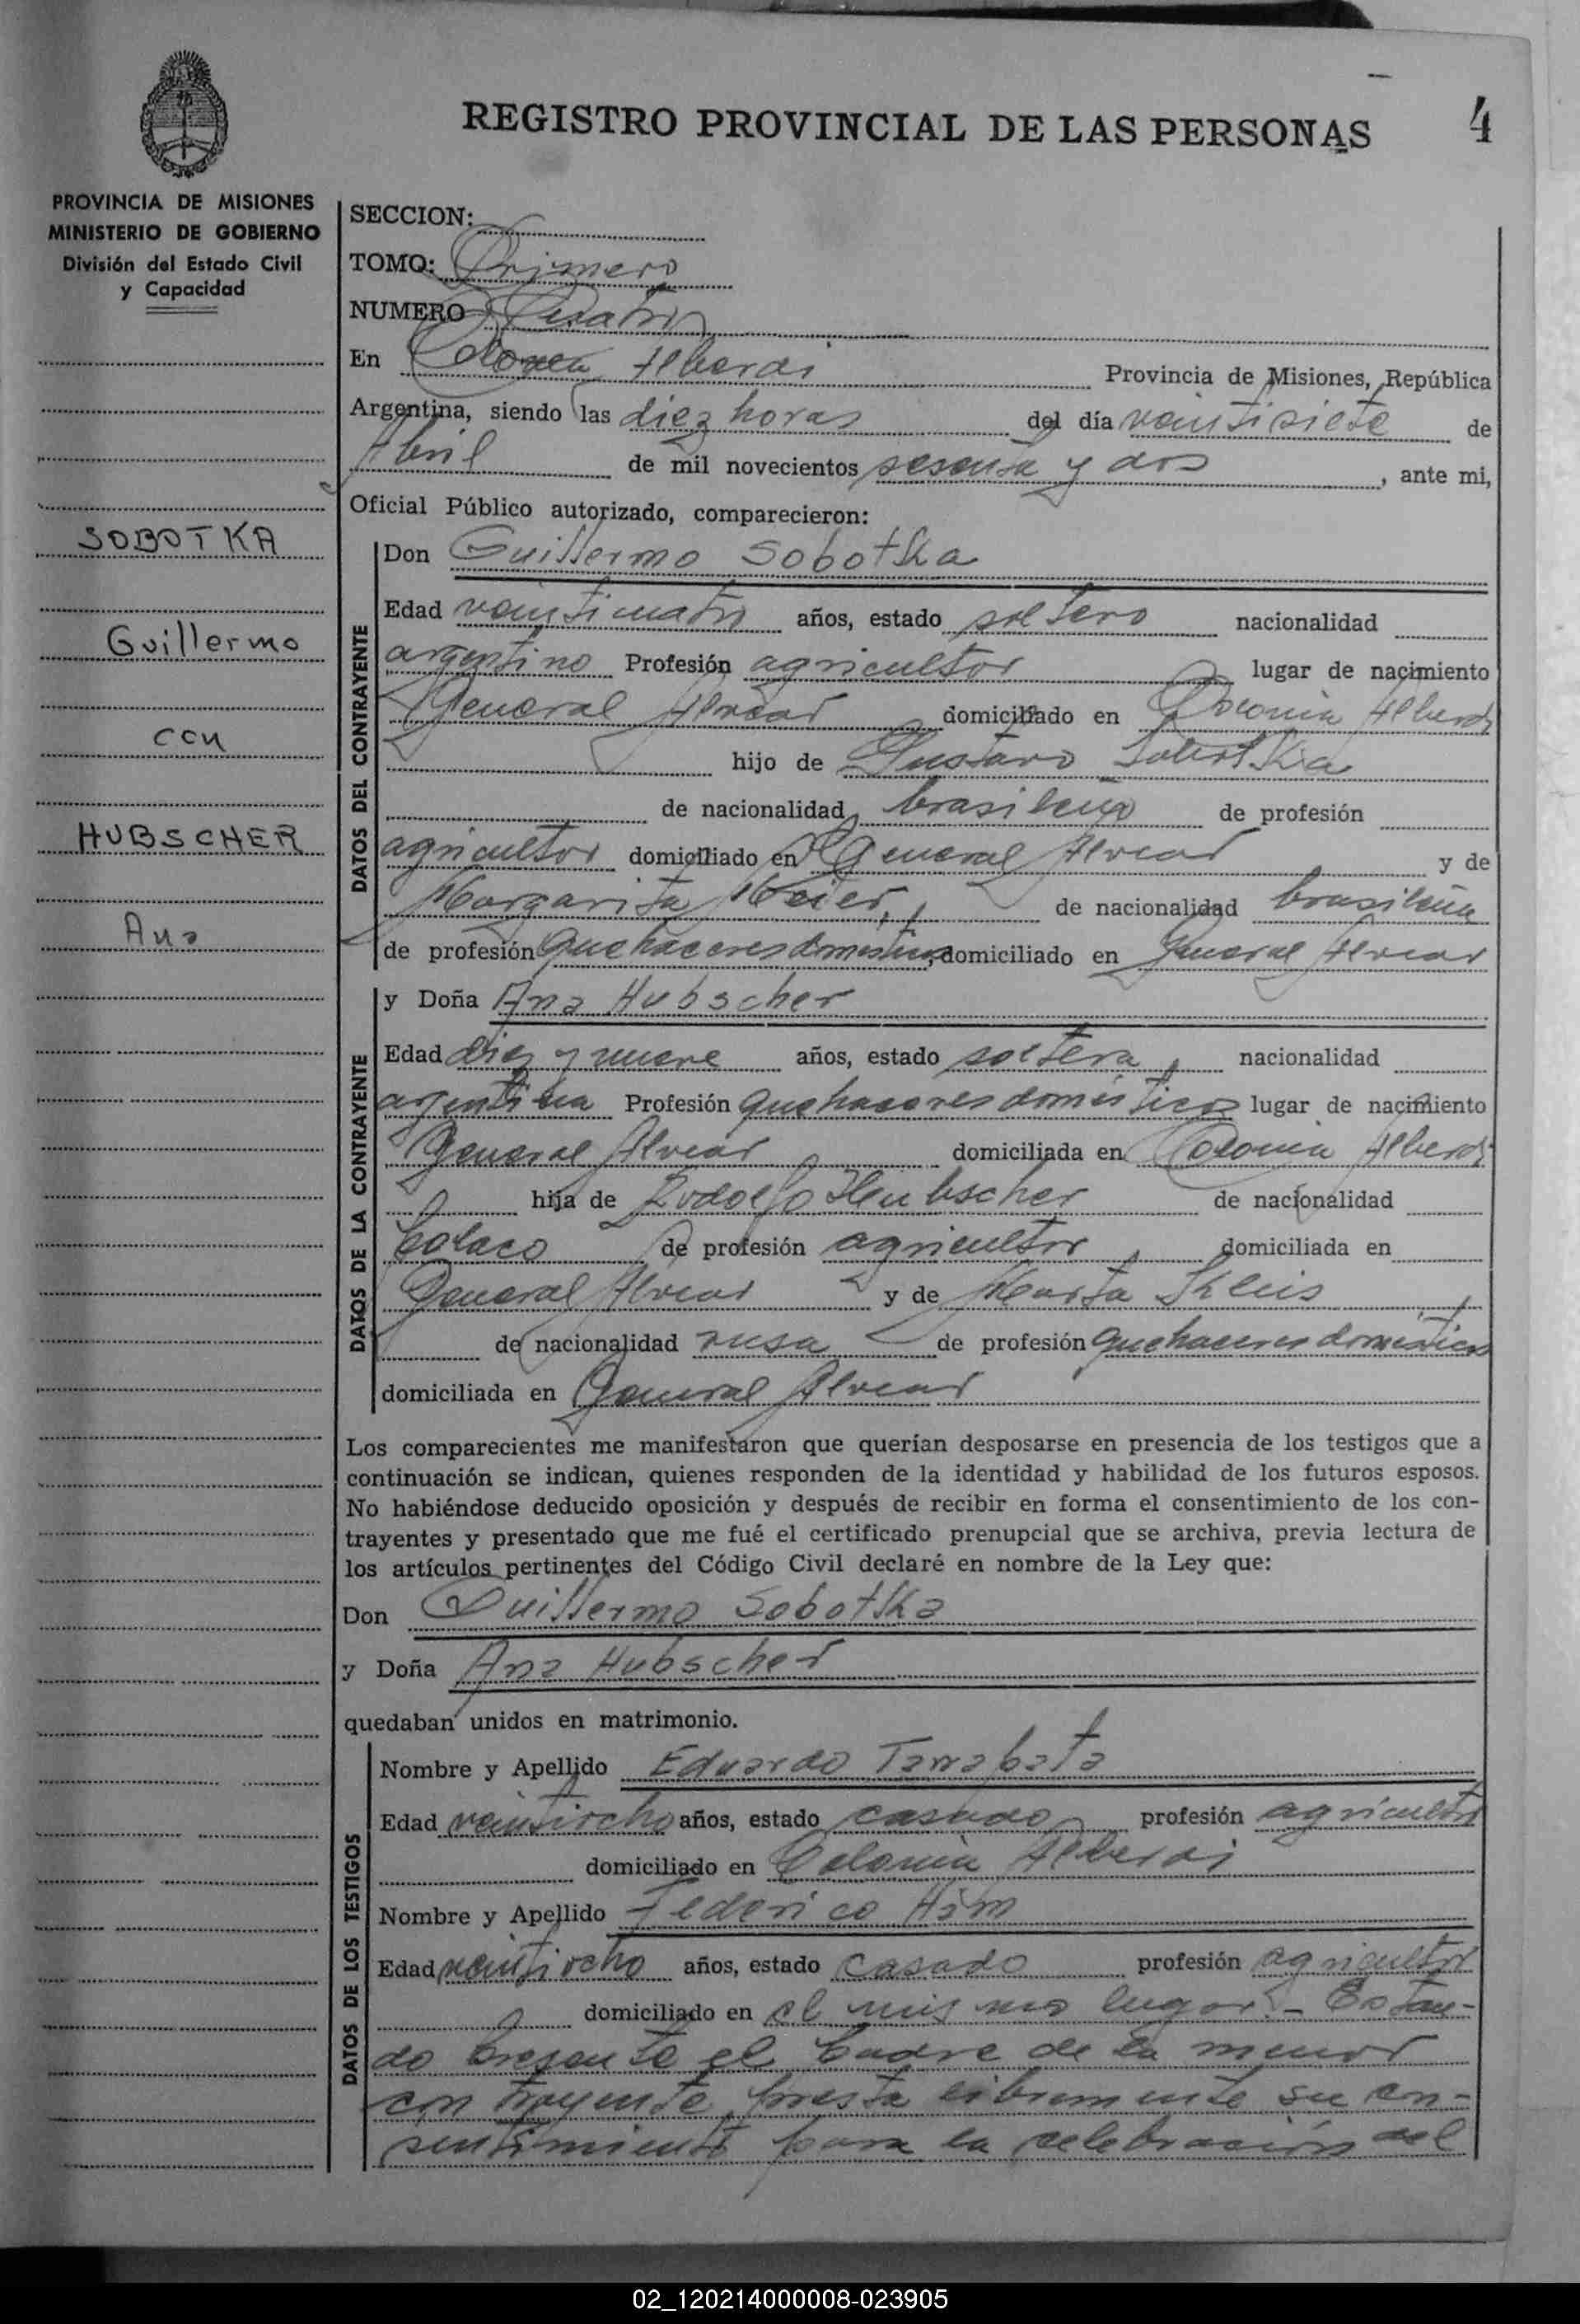 REGISTRO PROVINCIAL DE LAS PERSONAS
4
PROVINCIA DE MISIONES
MINISTERIO DE GOBIERNO
División del Estado Civil
y Capacidad
SOBOTKA
Guillermo
con
HUBSCHER
Ana
SECCION:
TOMO: Primero
NUMERO Cuatro
En Colonia Alberdi Provincia de Misiones, República
Argentina, siendo las diez horas del día veintisiete de
Abril de mil novecientos sesenta y dos, ante mi,
Oficial Público autorizado, comparecieron:
DATOS DEL CONTRAYENTE
Don Guillermo Sobotka
Edad veinticuatro años, estado soltero nacionalidad
argentino Profesión agricultor lugar de nacimiento
General Alvear domiciliado en Colonia Alberdi
hijo de Gustavo Sobotka
de nacionalidad brasileña de profesión
agricultor domiciliado en General Alvear y de
Margarita Meier, de nacionalidad brasileña
de profesión quehaceres domésticos, domiciliado en General Alvear
DATOS DE LA CONTRAYENTE
y Doña Ana Hubscher
Edad diez y nueve años, estado soltera, nacionalidad
argentina Profesión quehaceres domésticos lugar de nacimiento
General Alvear domiciliada en Colonia Alberdi
hija de Rodolfo Hubscher de nacionalidad
polaco de profesión agricultor, domiciliada en
General Alvear y de Marta
de nacionalidad rusa de profesión quehaceres domésticos
domiciliada en General Alvear
Los comparecientes me manifestaron que querían desposarse en presencia de los testigos que a
continuación se indican, quienes responden de la identidad y habilidad de los futuros esposos.
No habiéndose deducido oposición y después de recibir en forma el consentimiento de los con-
trayentes y presentado que me fué el certificado prenupcial que se archiva, previa lectura de
los artículos pertinentes del Código Civil declaré en nombre de la Ley que:
Don Guillermo Sobotka
y Doña Ana Hubscher
quedaban unidos en matrimonio.
DATOS DE LOS TESTIGOS
Nombre y Apellido Eduardo
Edad veintiocho años, estado casado profesión agricultor
domiciliado en Colonia Alberdi
Nombre y Apellido Federico
Edad veintiocho años, estado casado profesión agricultor
domiciliado en el mismo lugar.- Estan-
do presente el padre de la menor
contrayente, presta libremente su con-
sentimiento para la celebración del
02_120214000008-023905